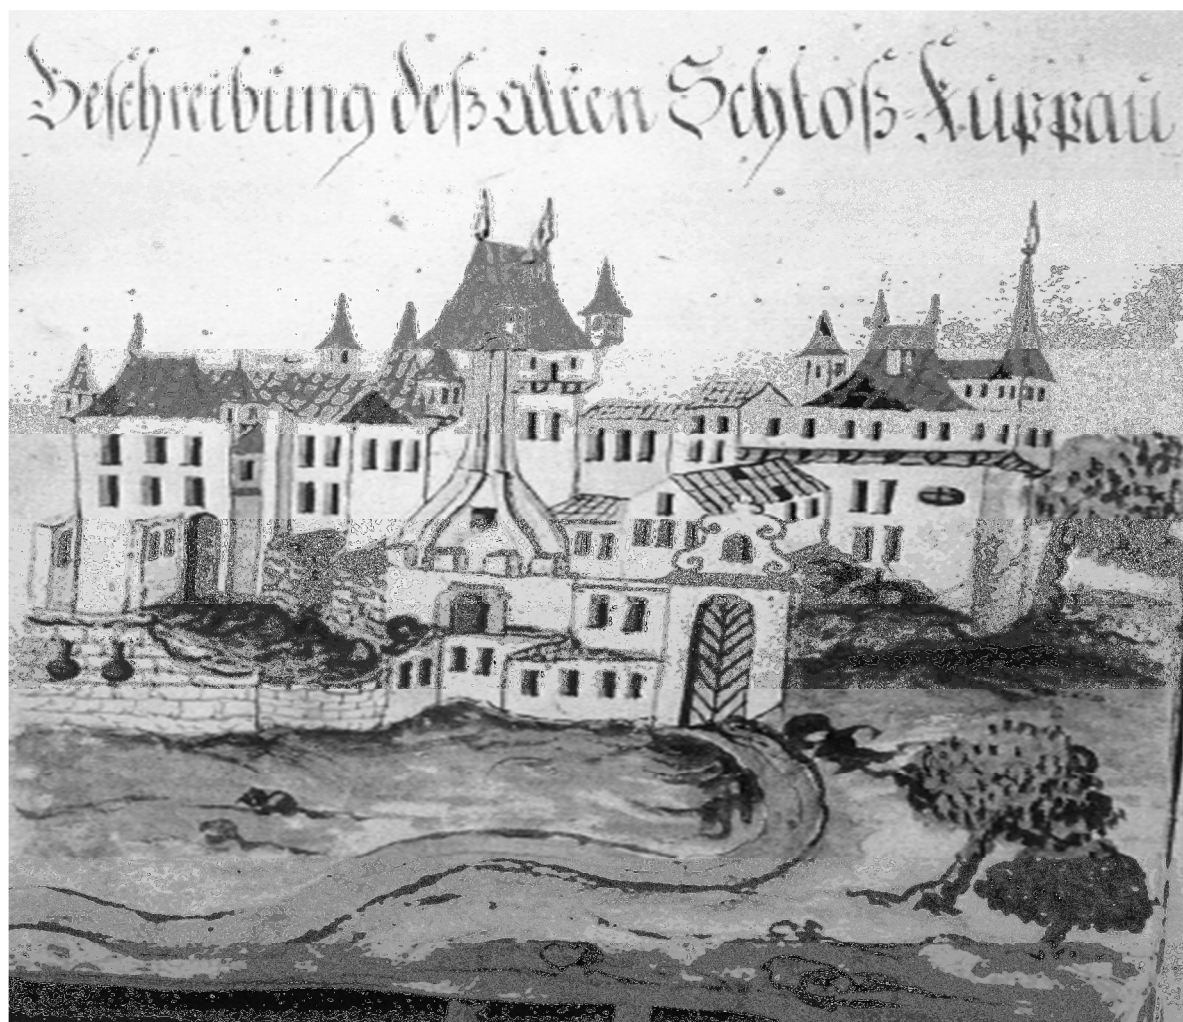 Beschreibung deß alten Schloß-Ruppau